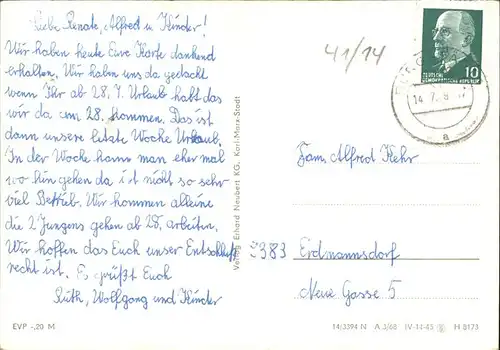 Liebe Renate, Alfred u Kinder!
Wir haben heute Eure Karte dankend
erhalten. Wir haben uns da gedacht
wenn Ihr ab 28. 7. Urlaub habt das
wir da am 28. kommen. Das ist
dann unsere letzte Woche Urlaub.
In der Woche kann man eher mal
wo hin gehen da ist nicht so sehr
viel Betrieb. Wir kommen alleine
die 2 Jungens gehen ab 28. arbeiten.
Wir hoffen das Euch unser Entschluß
recht ist. Es grüßt Euch
Ruth, Wolfgang und Kinder
EVP -,20 M
Verlag Erhard Neubert KG, Karl-Marx-Stadt
41/14
10
DEUTSCHE
DEMOKRATISCHE REPUBLIK
14. 7.
a
Fam. Alfred Kehr
9383 Erdmannsdorf
Neue Gasse 5
14/3394 N A 3/68 IV-14-45 H 8173